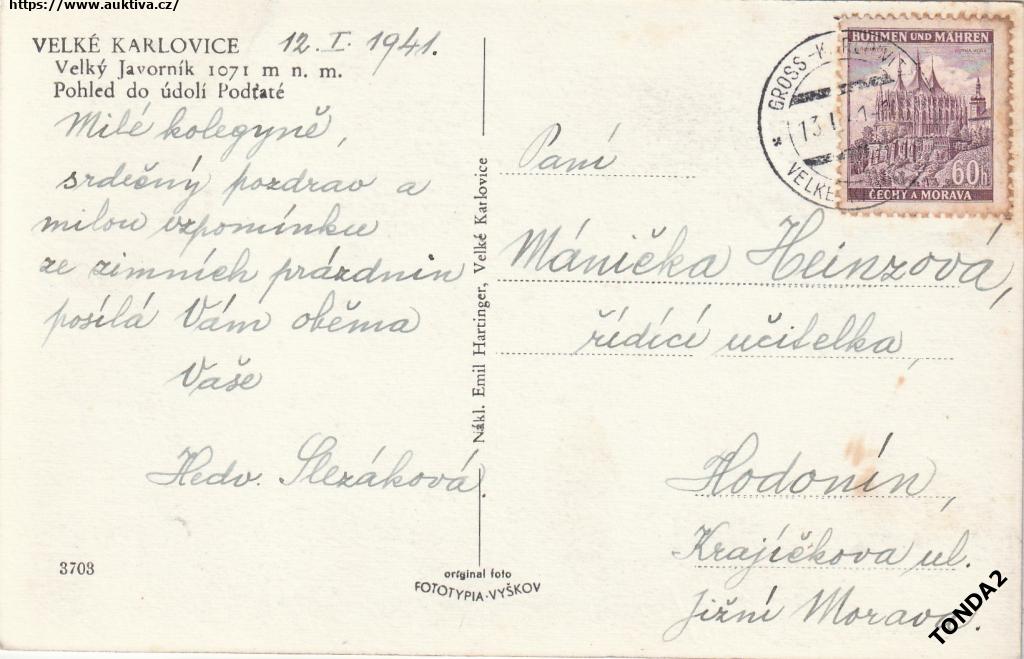 https://www.auktiva.cz/
VELKÉ KARLOVICE 12. I. 1941.
Velký Javorník 1071 m n. m.
Pohled do údolí Podťaté
Milé kolegyně,
srdečný pozdrav a
milou vzpomínku
ze zimních prázdnin
posílá Vám oběma
Vaše
Hedv. Slezáková.
3703
Nákl. Emil Hartinger, Velké Karlovice
original foto
FOTOTYPIA-VYŠKOV
BÖHMEN UND MÄHREN
60h
ČECHY A MORAVA
VELKÉ
13. I.
Paní
Mánička Heinzová,
řídící učitelka,
Hodonín,
Krajíčkova ul.
Jižní Morava.
TONDA2